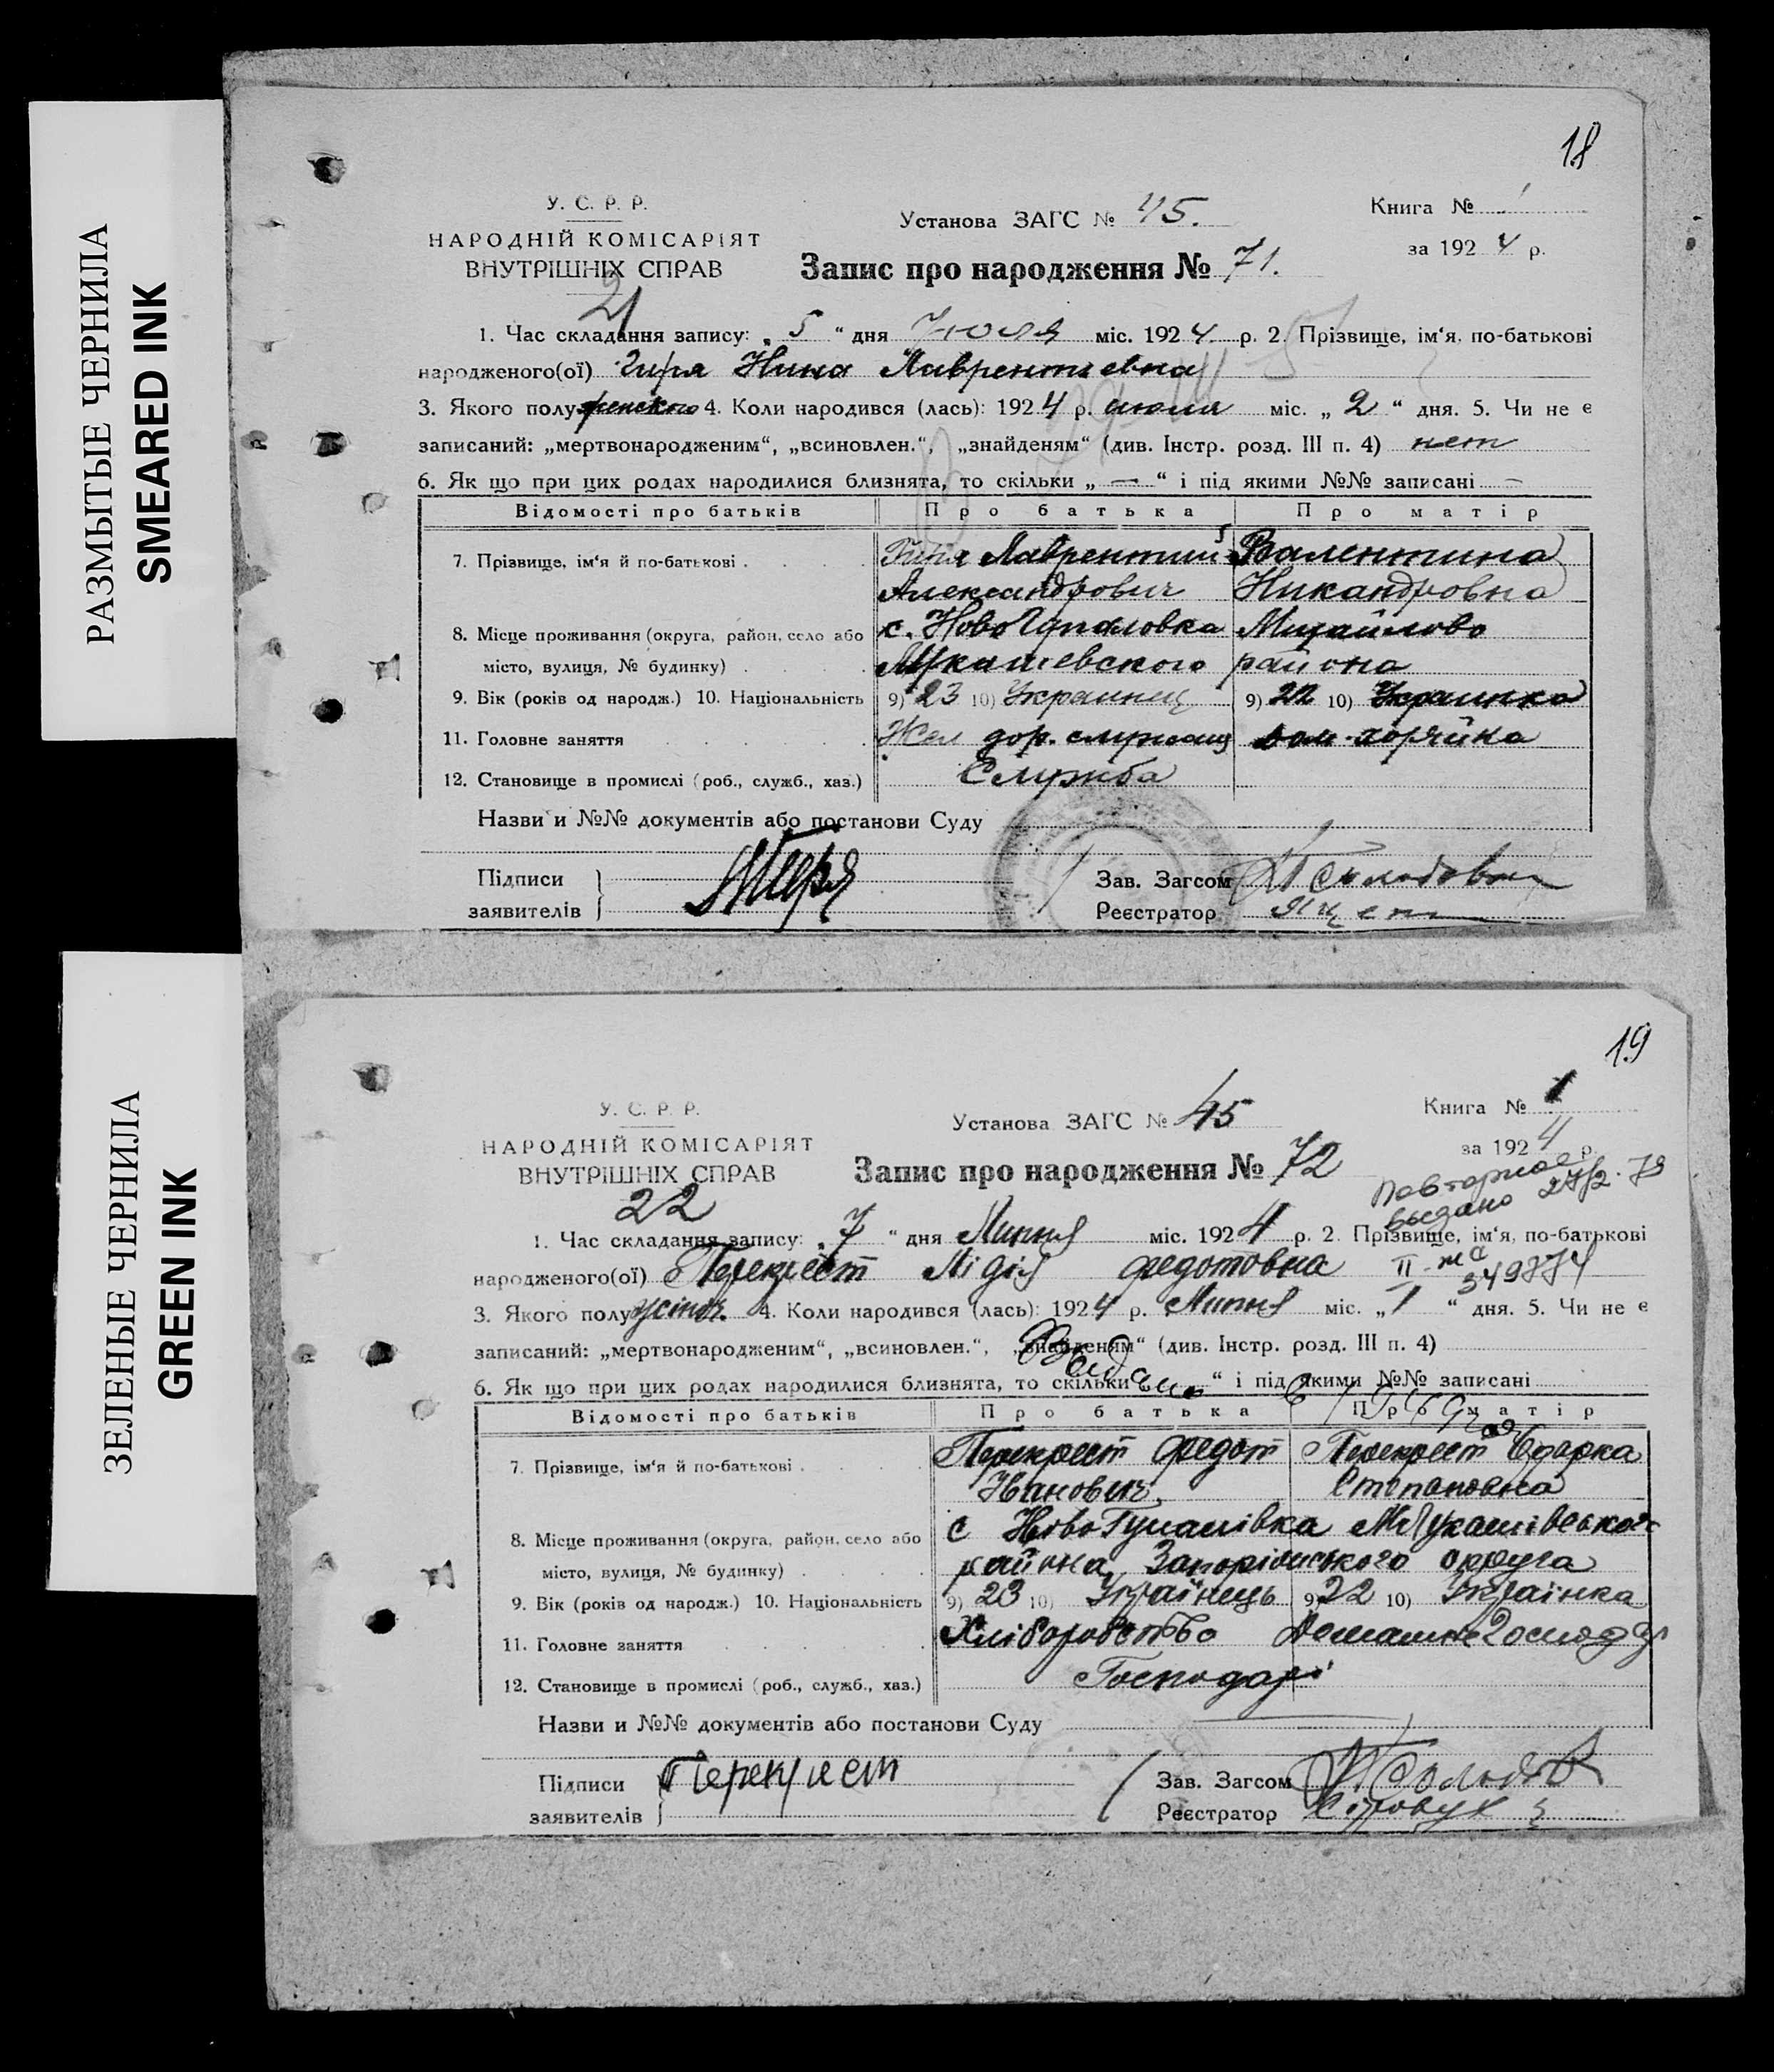 РАЗМЫТЫЕ ЧЕРНИЛА
SMEARED INK
18
У. С. Р. Р.
НАРОДНІЙ КОМІСАРІЯТ
ВНУТРІШНІХ СПРАВ
21
Установа ЗАГС № 45.
Запис про народження № 71.
Книга №
за 1924 р.
1. Час складання запису: „ 5 “ дня Июля міс. 1924 р. 2. Прізвище, ім‘я, по-батькові
народженого(ої) Гиря Нина Лаврентиевна
3. Якого полу женского 4. Коли народився (лась): 1924 р. июля міс. „ 2 “ дня. 5. Чи не є
записаний: „мертвонародженим“, „всиновлен.“, „знайденям“ (див. Інстр. розд. III п. 4) нет
6. Як що при цих родах народилися близнята, то скільки „ — “ і під якими №№ записані —
Відомості про батьків Про батька Про матір
7. Прізвище, ім‘я й по-батькові Гиря Лаврентий Валентина
Александрович Никандровна
8. Місце проживання (округа, район, село або с. Ново Гупаловка Михайлово
місто, вулиця, № будинку) Лукашевского района
9. Вік (років од народж.) 10. Національність 9) 23 10) Украинец 9) 22 10) Украинка
11. Головне заняття Жел дор. служащ дом. хозяйка
12. Становище в промислі (роб., служб., хаз.) Служба
Назви и №№ документів або постанови Суду
Підписи
заявителів
Гиря
Зав. Загсом
Реєстратор
ЗЕЛЕНЫЕ ЧЕРНИЛА
GREEN INK
19
У. С. Р. Р.
НАРОДНІЙ КОМІСАРІЯТ
ВНУТРІШНІХ СПРАВ
22
Установа ЗАГС № 45
Запис про народження № 72
Книга № 1
за 1924 р.
Повторное
выдано
II-жа
349774
1. Час складання запису: „ 7 “ дня Липня міс. 1924 р. 2. Прізвище, ім‘я, по-батькові
народженого(ої) Перекрест Лідія Федотовна
3. Якого полу жіноч. 4. Коли народився (лась): 1924 р. Липня міс. „ 1 “ дня. 5. Чи не є
записаний: „мертвонародженим“, „всиновлен.“, „знайденям“ (див. Інстр. розд. III п. 4)
6. Як що при цих родах народилися близнята, то скільки “ і під якими №№ записані
Відомості про батьків Про батька Про матір
7. Прізвище, ім‘я й по-батькові Перекрест Федот Перекрест Одарка
Иванович Степановна
8. Місце проживання (округа, район, село або с Ново Гупалівка М Лукашівського
місто, вулиця, № будинку) района Запоріжського округа
9. Вік (років од народж.) 10. Національність 9) 23 10) Українець 9) 22 10) Українка
11. Головне заняття Хліборобство
12. Становище в промислі (роб., служб., хаз.) Господарі
Назви и №№ документів або постанови Суду
Підписи
заявителів
Перекрест
Зав. Загсом
Реєстратор